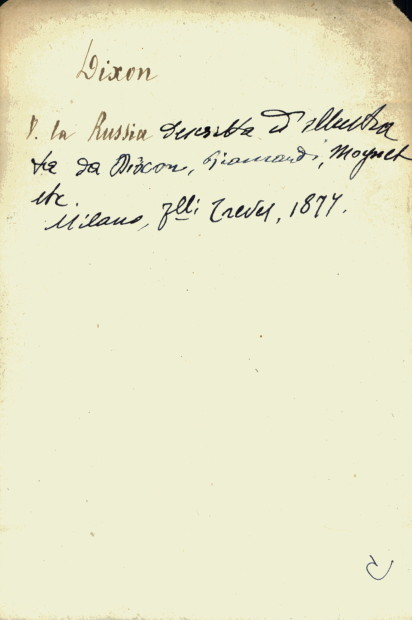 Dixon
V. la Russia descritta ed illustra
ta da Dixon, Moynet
etc.
Milano, flli Treves, 1877.